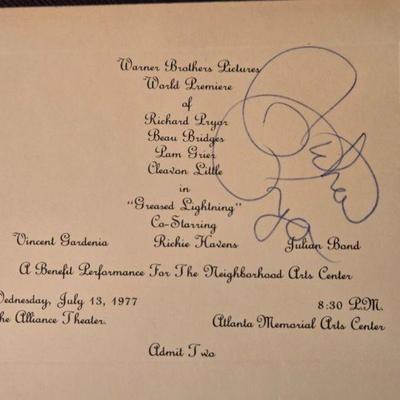 Warner Brothers Pictures
World Premiere
of
Richard Pryor
Beau Bridges
Pam Grier
Cleavon Little
in
"Greased Lightning"
Co-Starring
Vincent Gardenia Richie Havens Julian Bond
A Benefit Performance For The Neighborhood Arts Center
Wednesday, July 13, 1977 8:30 P.M.
The Alliance Theater. Atlanta Memorial Arts Center
Admit Two